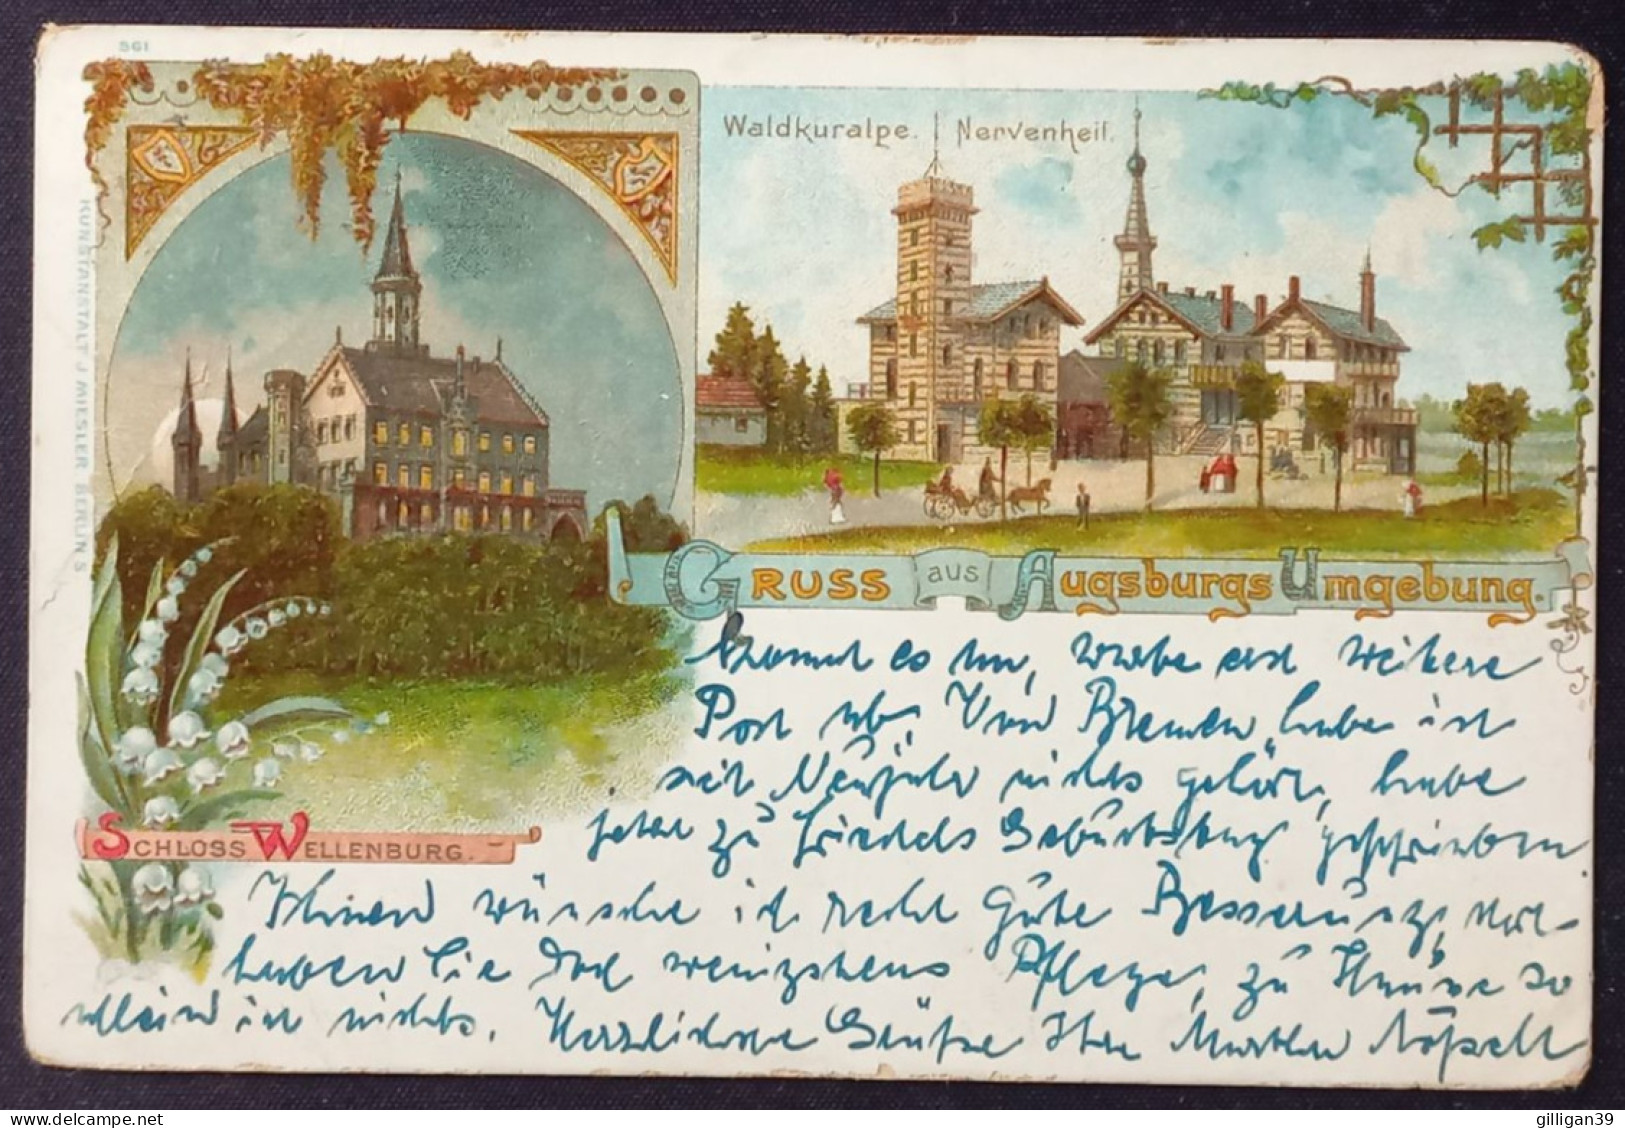 561
Waldkuralpe. Nervenheil.
KUNSTANSTALT J MIESLER BERLIN S
GRUSS aus Augsburgs Umgebung.
Kommt es an, werbe erst weitere
Post ab. Von Bremen habe ich
seit Neujahr nichts gehört, habe
jetzt zu Geburtstag geschrieben.
SCHLOSS WELLENBURG.
Ihnen wünsche ich recht gute Besserung,
haben Sie doch wenigstens Pflege, zu Hause so
allein ist nichts. Herzlichste Grüße Ihre Martha
delcampe.net
gilligan39